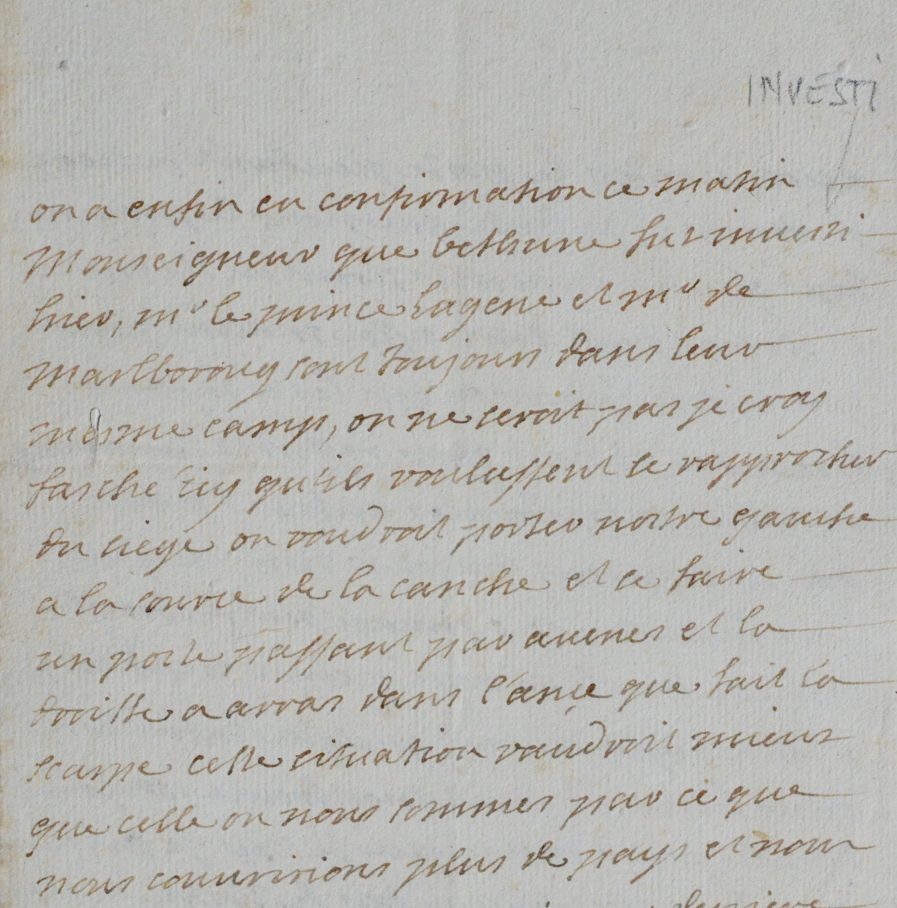 INVESTI
on a enfin eu confirmation ce matin
Monseigneur que bethune fut investi
hier, mr le prince Eugene et mr de
Marlboroug sont toujours dans leur
mesme camp, on ne seroit pas je croy
fasché icy qu'ils voulussent se rapprocher
du siege on voudroit porter nostre gauche
a la source de la canche et se faire
un poste passant par avenes et la
droitte a arras dans l'ance que fait la
scarpe cette situation vaudroit mieux
que celle ou nous sommes par ce que
nous couvririons plus de pays et nour
derriere